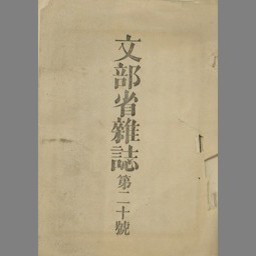 文部省雜誌
第二十號